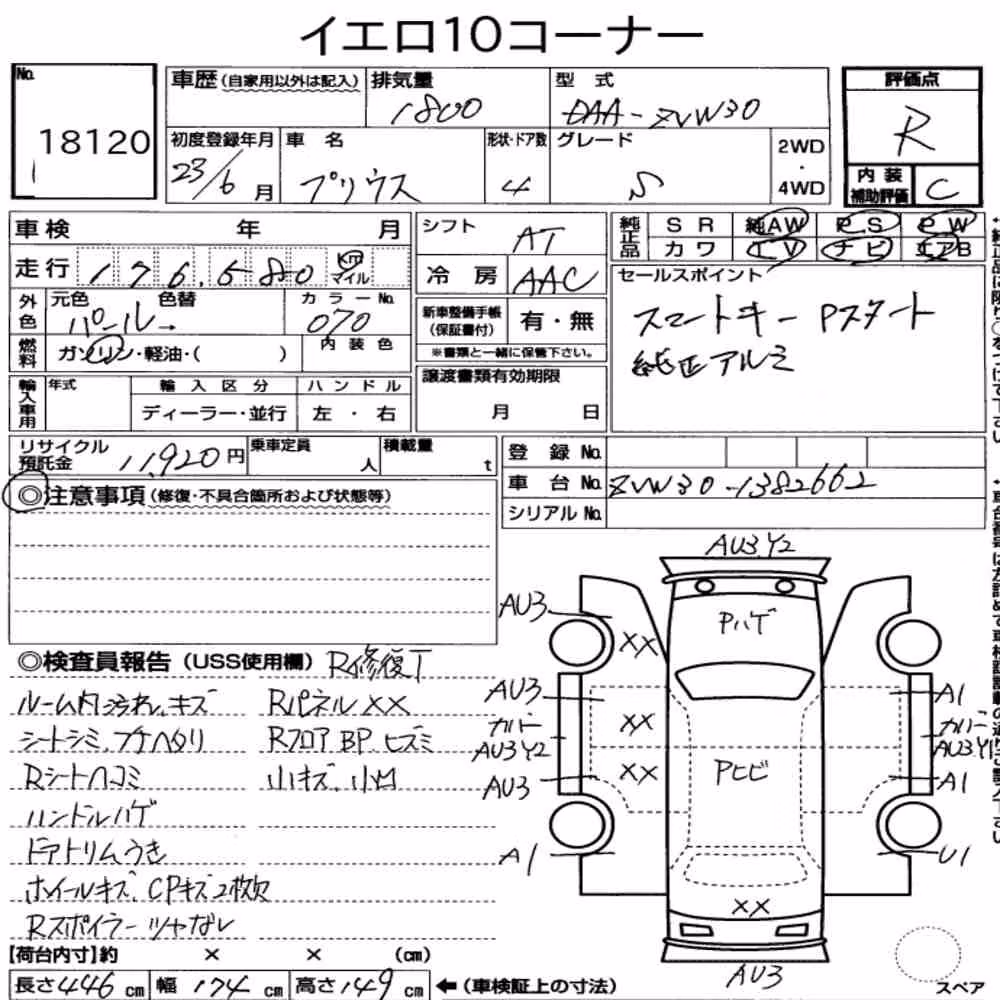 イエロ10コーナー
No. 18120
車歴(自家用以外は記入)
排気量 1800
型式 DAA-ZVW30
評価点 R
初度登録年月 23/6月
車名 プリウス
形状・ドア数 4
グレード S
2WD・4WD
内装補助評価 C
車検 年 月
シフト AT
純正品 SR 純AW PS PW
カワ TV ナビ エアB
走行 176,680 km マイル
冷房 AAC
セールスポイント
スマートキー Pスタート
純正アルミ
外色 元色 色替 パール→
カラーNo. 070
新車整備手帳(保証書付) 有・無
※書類と一緒に保管下さい。
燃料 ガソリン・軽油・( )
内装色
譲渡書類有効期限
月 日
輸入車用 年式 輸入区分 ハンドル
ディーラー・並行 左・右
リサイクル預託金 11,920円
乗車定員 人
積載量 t
登録No.
車台No. ZVW30-1382662
シリアルNo.
◎注意事項(修復・不具合箇所および状態等)
◎検査員報告(USS使用欄) R修復丁
ルーム内汚れ、キズ Rパネル××
シートシミ、フチヘタリ Rフロア BP、ヒズミ
Rシートヘコミ 小キズ、小凹
ハンドルハゲ
ドアトリムうき
ホイールキズ、CPキズ2枚欠
Rスポイラーツヤなし
AU3.Y2
AU3
Pハゲ
××
AU3
A1
カバー
AU3Y2
××
カバー
AU3Y1
AU3
××
Pヒビ
A1
A1
U1
××
AU3
スペア
【荷台内寸】約 × × (cm)
長さ446cm 幅174cm 高さ149cm ←(車検証上の寸法)